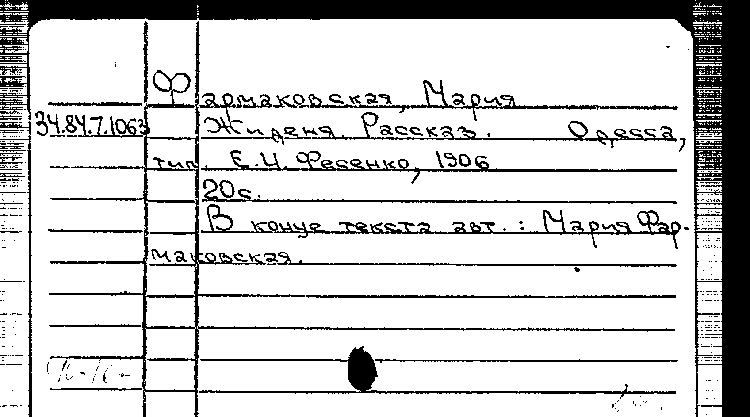 Фармаковская, Мария
34.84.7.1063 Жиденя. Рассказ. Одесса,
тип. Е.И. Фесенко, 1906
20с.
В конце текста авт.: Мария Фар-
маковская.